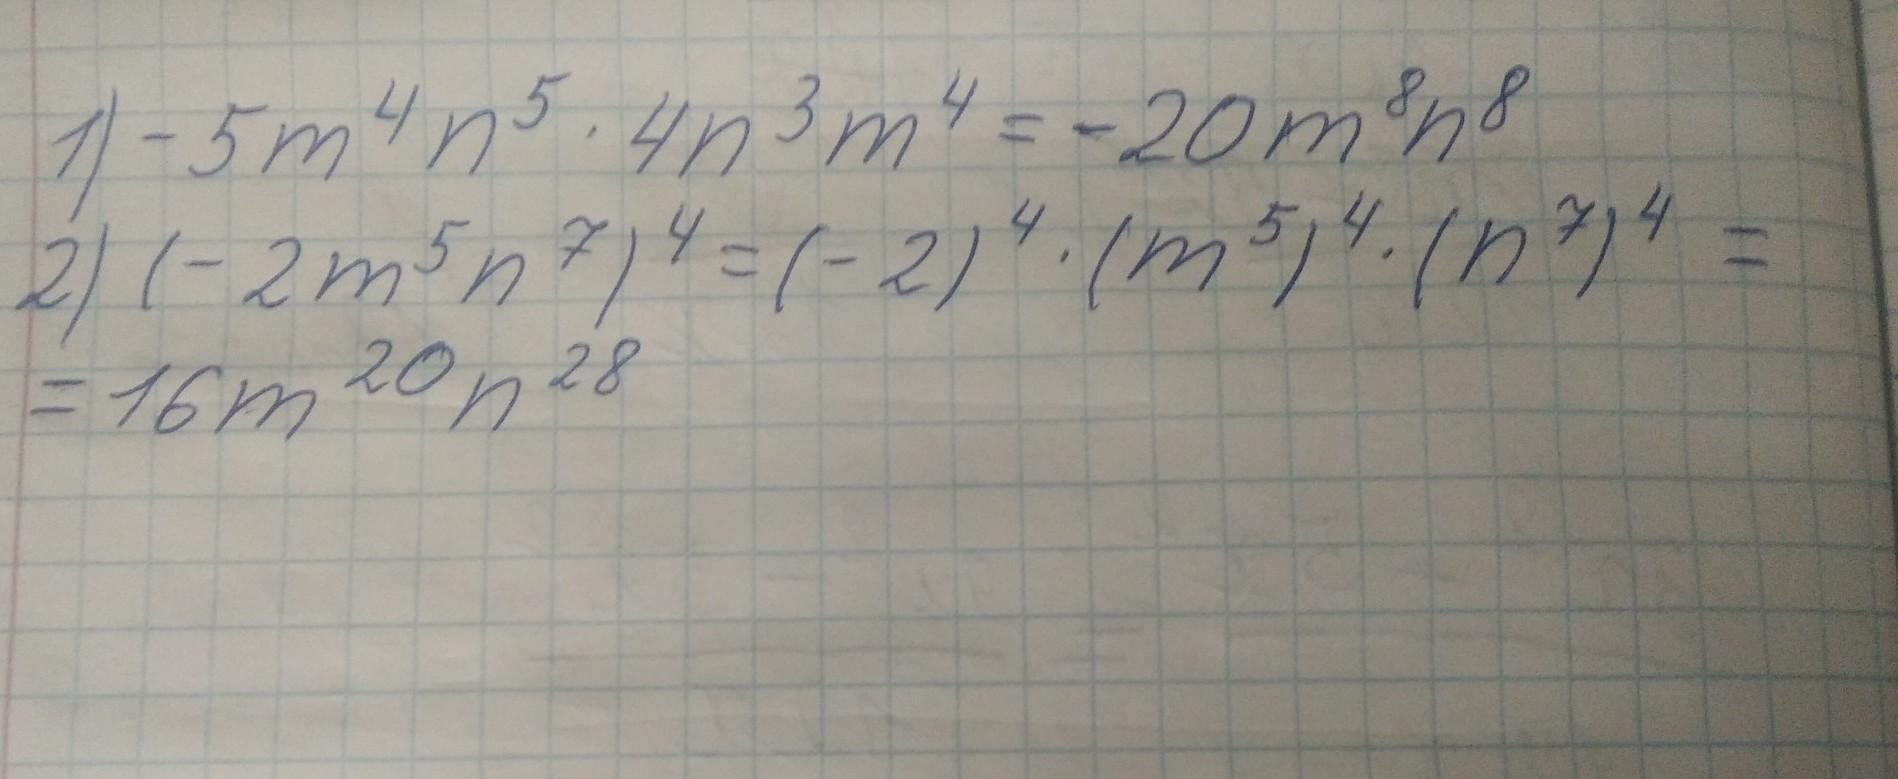 1) -5m⁴n⁵ · 4n³m⁴ = -20m⁸n⁸
2) (-2m⁵n⁷)⁴ = (-2)⁴ · (m⁵)⁴ · (n⁷)⁴ =
= 16m²⁰n²⁸